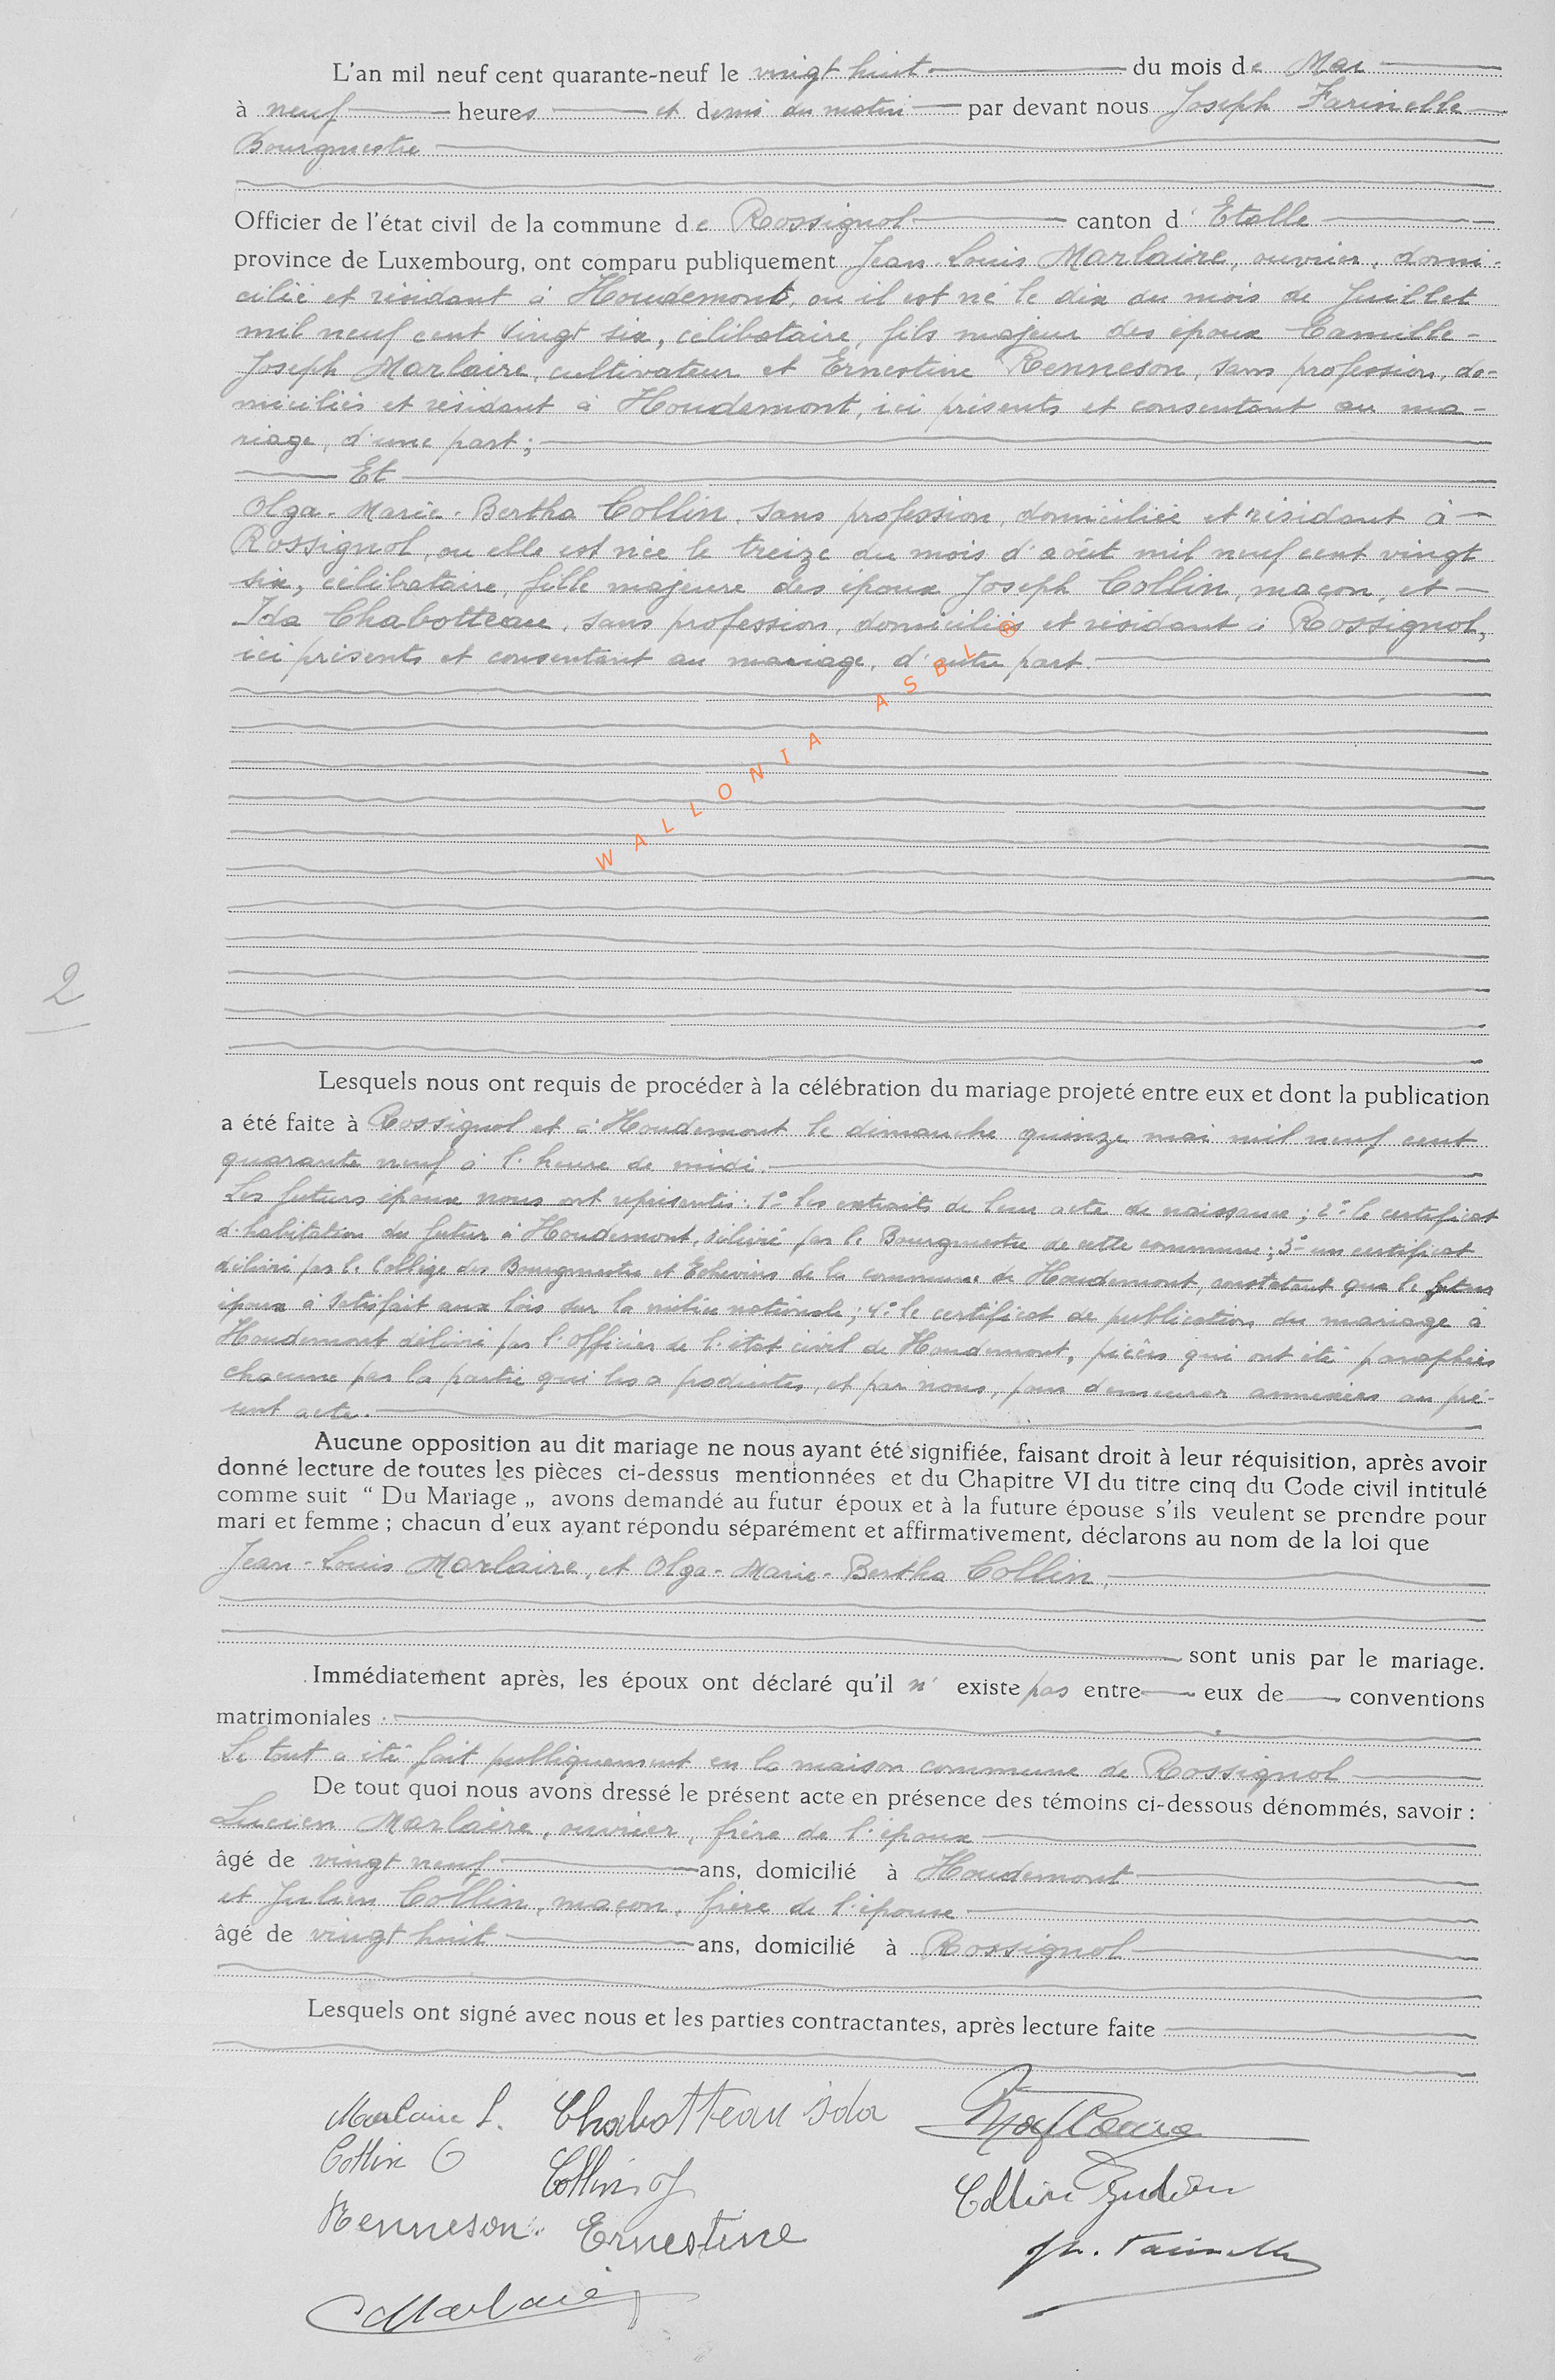 L'an mil neuf cent quarante-neuf le vingt huit du mois de Mai
à neuf heures et demi du matin par devant nous Joseph Farinelle
Bourgmestre
Officier de l'état civil de la commune de Rossignol canton d' Etalle
province de Luxembourg, ont comparu publiquement Jean-Louis Marlaire, ouvrier, domi-
cilié et résidant à Houdemont, ou il est né le dix du mois de Juillet
mil neuf cent vingt six, célibataire, fils majeur des époux Camille-
Joseph Marlaire, cultivateur et Ernestine Renneson, sans profession, do-
miciliés et résidant à Houdemont, ici présents et consentant au ma-
riage, d'une part;
Et
Olga-Marie-Bertha Collin, sans profession, domiciliée et résidant à
Rossignol, ou elle est née le treize du mois d'août mil neuf cent vingt
six, célibataire, fille majeure des époux Joseph Collin, maçon, et
Ida Chabotteau, sans profession, domiciliés et résidant à Rossignol,
ici présents et consentant au mariage, d'autre part.
WALLONIA ASBL ®
2
Lesquels nous ont requis de procéder à la célébration du mariage projeté entre eux et dont la publication
a été faite à Rossignol et à Houdemont le dimanche quinze mai mil neuf cent
quarante neuf à l'heure de midi.
Les futurs époux nous ont représentés: 1° les extraits de leur acte de naissance; 2° le certificat
d'habitation du futur à Houdemont, délivré par le Bourgmestre de cette commune; 3° un certificat
délivré par le Collège des Bourgmestre et Echevins de la commune de Houdemont, constatant que le futur
époux à satisfait aux lois sur la milice nationale; 4° le certificat de publication du mariage à
Houdemont délivré par l'officier de l'état civil de Houdemont, pièces qui ont été paraphées
chacune par la partie qui les a produites, et par nous, pour demeurer annexées au pré-
sent acte.
Aucune opposition au dit mariage ne nous ayant été signifiée, faisant droit à leur réquisition, après avoir
donné lecture de toutes les pièces ci-dessus mentionnées et du Chapitre VI du titre cinq du Code civil intitulé
comme suit “ Du Mariage „ avons demandé au futur époux et à la future épouse s'ils veulent se prendre pour
mari et femme ; chacun d'eux ayant répondu séparément et affirmativement, déclarons au nom de la loi que
Jean-Louis Marlaire, et Olga-Marie-Bertha Collin,
sont unis par le mariage.
Immédiatement après, les époux ont déclaré qu'il n' existe pas entre eux de conventions
matrimoniales.
Le tout a été fait publiquement en la maison commune de Rossignol
De tout quoi nous avons dressé le présent acte en présence des témoins ci-dessous dénommés, savoir :
Lucien Marlaire, ouvrier, frère de l'époux
âgé de vingt neuf ans, domicilié à Houdemont
et Julien Collin, maçon, frère de l'épouse
âgé de vingt huit ans, domicilié à Rossignol
Lesquels ont signé avec nous et les parties contractantes, après lecture faite
Marlaire L. Chabotteau Ida
Collin O Collin J Collin Julien
Renneson Ernestine
Jh. Farinelle
C Marlaire